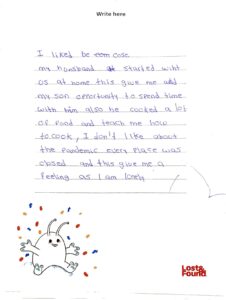 Write here
I liked be com cose
my hunsband started wiht
us at home this give me and
my son opportunity to spend time
with him also he cooked a lot
of food and teach me how
to cook, I don't like about
the Pandemic every Plase was
closed and this give me a
feeling as I am lonely
Lost&
Found